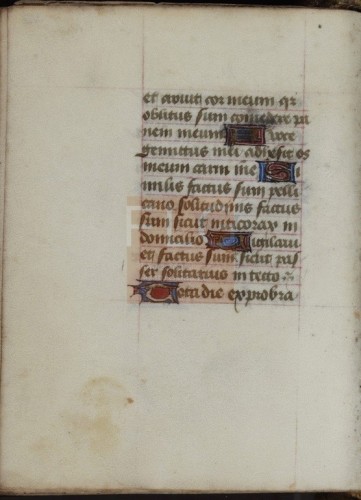 et aruit cor meum qr
oblitus sum comedere pa
nem meum A voce
gemitus mei adhesit os
meum carni mee Si
milis factus sum pelli
cano solitudinis factus
sum sicut niticorax in
domicilio Vigilavi
et factus sum sicut pas
ser solitarius in tecto
Tota die exprobra